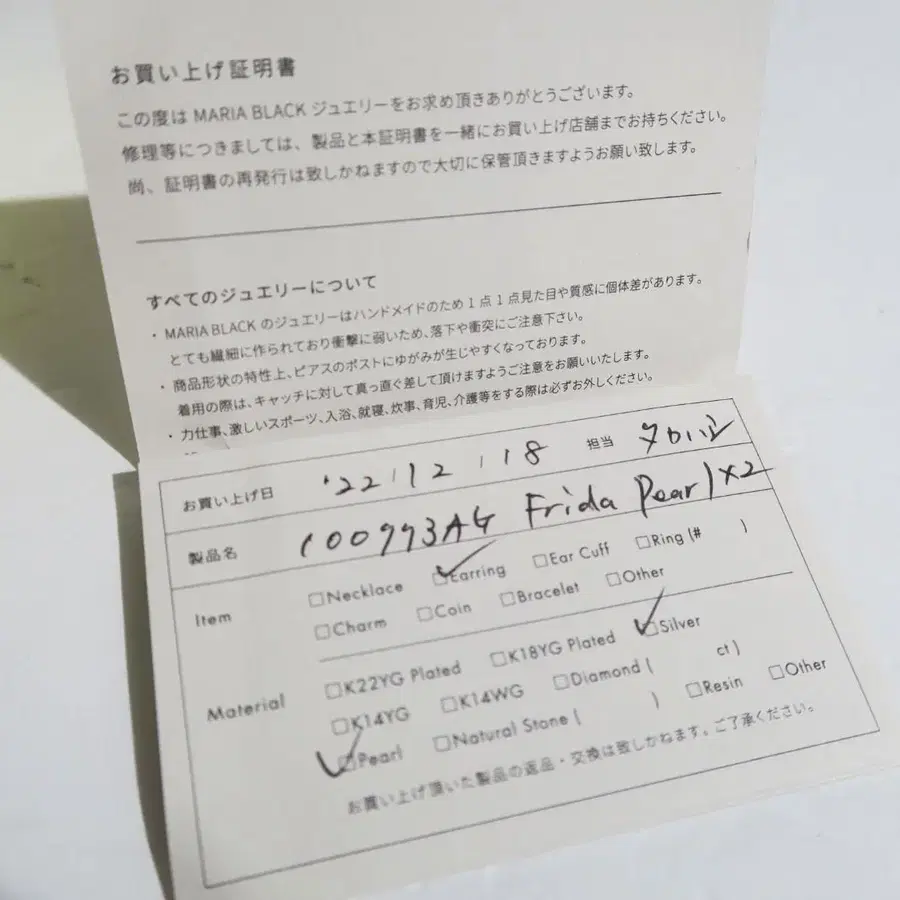 お買い上げ証明書
この度は MARIA BLACK ジュエリーをお求め頂きありがとうございます。
修理等につきましては、製品と本証明書を一緒にお買い上げ店舗までお持ちください。
尚、証明書の再発行は致しかねますので大切に保管頂きますようお願い致します。
すべてのジュエリーについて
・MARIA BLACK のジュエリーはハンドメイドのため 1 点 1 点見た目や質感に個体差があります。
とても繊細に作られており衝撃に弱いため、落下や衝突にご注意下さい。
・商品形状の特性上、ピアスのポストにゆがみが生じやすくなっております。
着用の際は、キャッチに対して真っ直ぐ差して頂けますようご注意をお願いいたします。
・力仕事、激しいスポーツ、入浴、就寝、炊事、育児、介護等をする際は必ずお外しください。
お買い上げ日 '22 / 12 / 18 担当
製品名 100993AG Frida Pearl×2
Item □Necklace □Earring □Ear Cuff □Ring (# )
□Charm □Coin □Bracelet □Other
Material □K22YG Plated □K18YG Plated □Silver
□K14YG □K14WG □Diamond ( ct )
□Pearl □Natural Stone ( ) □Resin □Other
お買い上げ頂いた製品の返品・交換は致しかねます。ご了承ください。